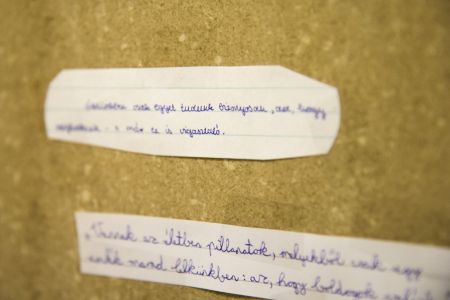 csak egyet tudunk bizonyosan, azt, hogy
meghalunk - s már ez is vigasztaló.
„Vannak az életben pillanatok, melyekből csak egy
emlék marad lelkünkben: az, hogy boldogok